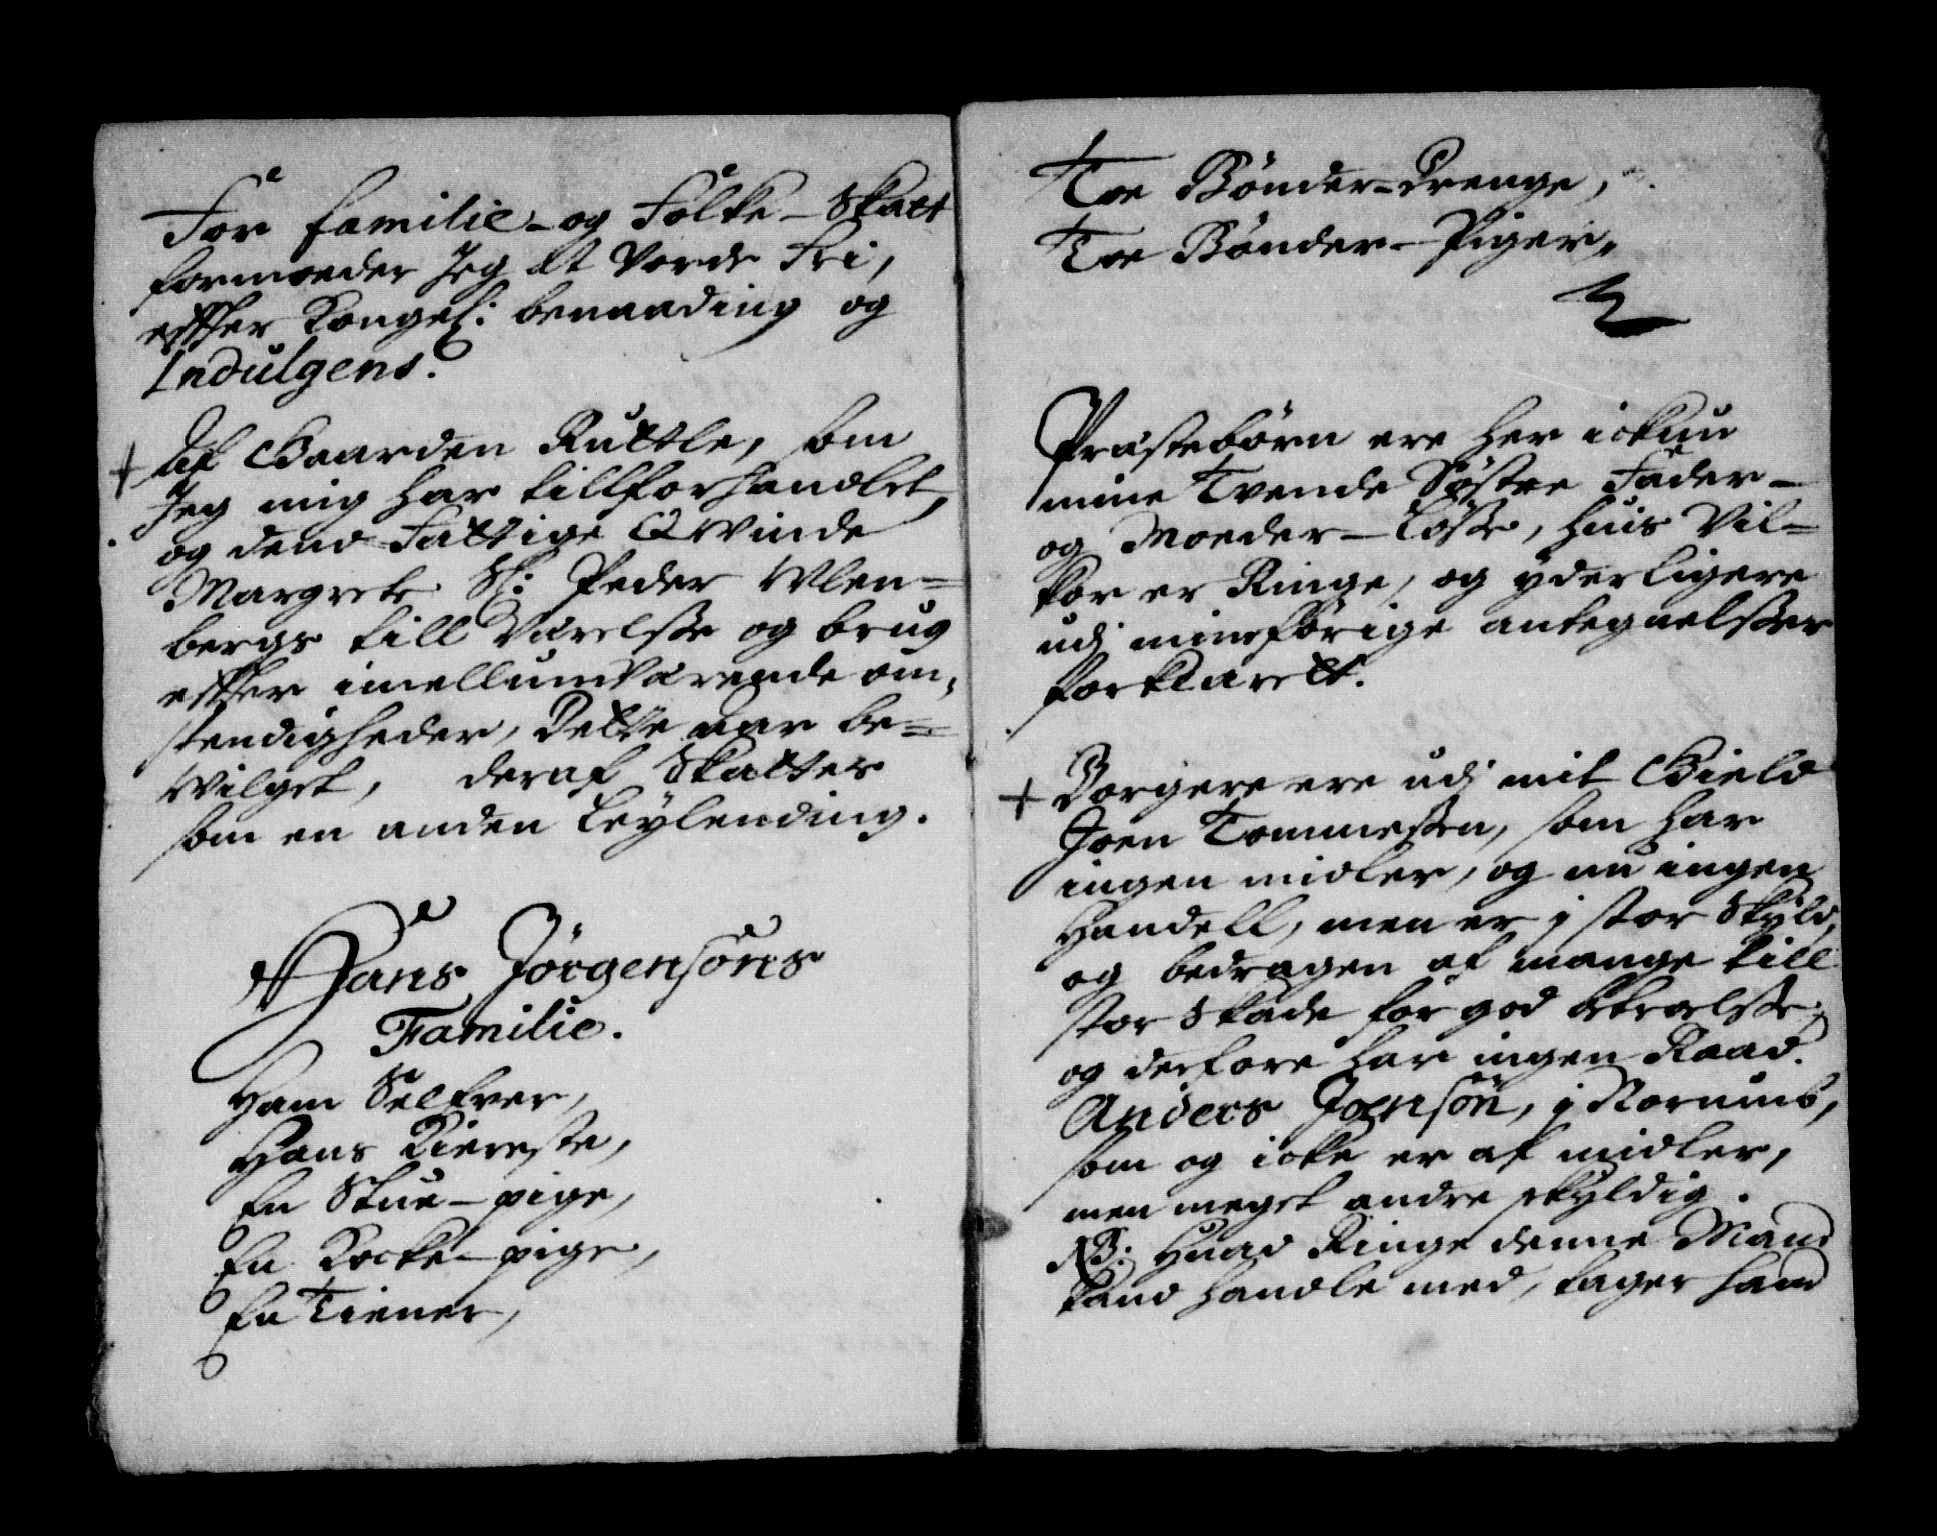 For familie- og Folke-Skatt
formoeder Jeg At Vorde Fri,
effter Kongel: benaading og
Indulgens.
+ Af Gaarden Ruttle, som
Jeg mig har tillforhandlet,
og dend Fattige Qvinde
Margrete Sl: Peder Wlen=
bergs till Værelsse og brug
effter imellumværende om,
stendigheder, Dette aar be=
vilget, deraf Skatter
som en anden Leylending.
Hans Jørgensøns
Familie.
Ham Selfver,
Hans Kiereste,
En Stue-pige,
En Kocke-pige,
En Tiener,
Toe Bønder-Drenge,
Toe Bønder-Piger,
Præstebørn ere her ickun
mine Tvende Søstre Fader-
og Moeder-Løsse, huis Vil=
kor er Ringe, og yderligere
udj mine forige antegnelsser
forklarett.
+ Borgere ere udj mit Gield
Joen Tommessen, som har
ingen midler, og nu ingen
Handell, men er j stor Skyld,
og bedragen af mange till
stor Skade for god
og derfore har ingen Raad.
Anders Joensøn, j Norumb,
som og icke er af midler,
men meget andre skyldig.
NB: Huad Ringe denne Mand
kand handle med, tager hand